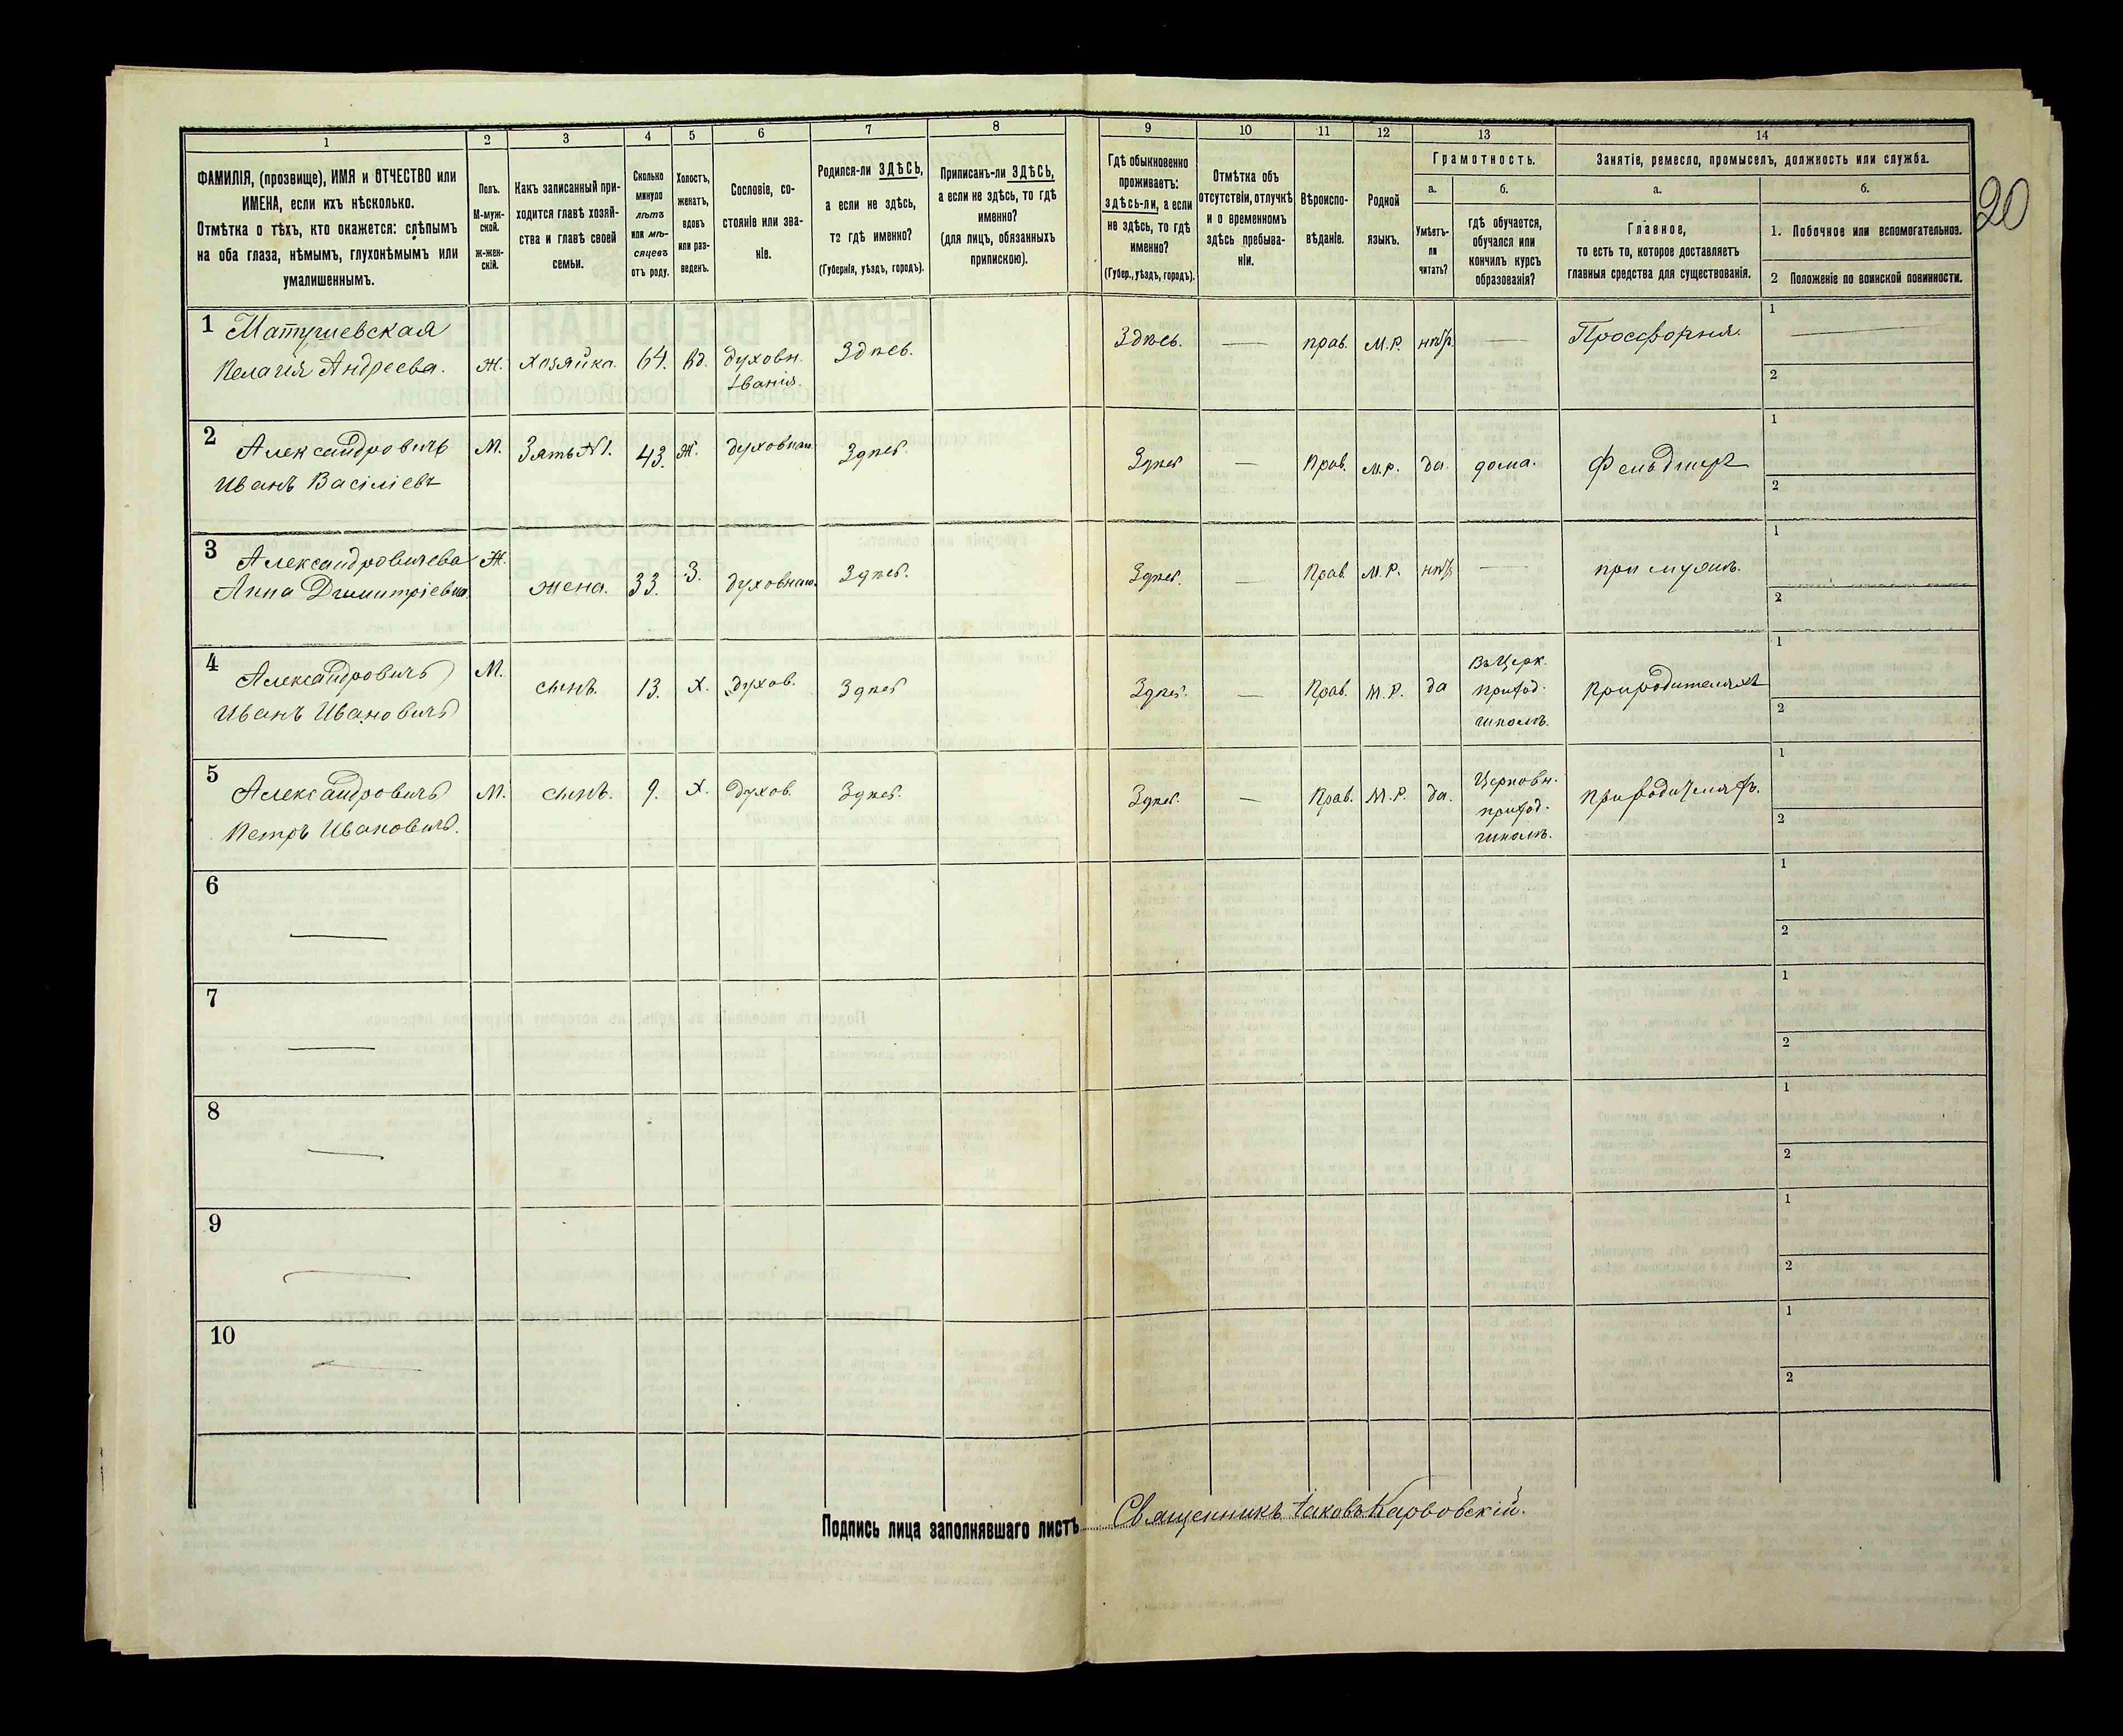 1
2
3
4
5
6
7
8
9
10
11
12
13
14
ФАМИЛІЯ, (прозвище), ИМЯ и ОТЧЕСТВО или
ИМЕНА, если ихъ нѣсколько.
Отмѣтка о тѣхъ, кто окажется: слѣпымъ
на оба глаза, нѣмымъ, глухонѣмымъ или
умалишеннымъ.
Полъ.
М-муж-
ской.
Ж-жен-
скій.
Какъ записанный при-
ходится главѣ хозяй-
ства и главѣ своей
семьи.
Сколько
минуло
лѣтъ
или мѣ-
сяцевъ
отъ роду.
Холостъ,
женатъ,
вдовъ
или раз-
веденъ.
Сословіе, со-
стояніе или зва-
ніе.
Родился-ли ЗДѢСЬ,
а если не здѣсь,
то гдѣ именно?
(Губернія, уѣздъ, городъ).
Приписанъ-ли ЗДѢСЬ,
а если не здѣсь, то гдѣ
именно?
(для лицъ, обязанныхъ
припискою).
Гдѣ обыкновенно
проживаетъ:
здѣсь-ли, а если
не здѣсь, то гдѣ
именно?
(Губер., уѣздъ, городъ).
Отмѣтка объ
отсутствіи, отлучкѣ
и о временномъ
здѣсь пребыва-
ніи.
Вѣроиспо-
вѣданіе.
Родной
языкъ.
Грамотность.
а.
Умѣетъ-
ли
читать?
б.
гдѣ обучается,
обучался или
кончилъ курсъ
образованія?
Занятіе, ремесло, промыселъ, должность или служба.
а.
Главное,
то есть то, которое доставляетъ
главныя средства для существованія.
б.
1. Побочное или вспомогательное.
2 Положеніе по воинской повинности.
20
1 Матушевская
Пелагия Андреева.
Ж.
хозяйка.
64.
вд.
духовн.
званія.
Здѣсь.
Здѣсь.
—
прав.
М.Р.
нѣтъ
—
Просфорня.
1
2
2 Александровичъ
Иванъ Васіліевъ
М.
Зять №1.
43.
Ж.
Здѣсь.
Здѣсь
—
Прав.
М.Р.
да.
дома.
Фельдшеръ
1
2
3 Александровичева
Анна Дмитріевна.
Ж.
жена.
33.
З.
Здѣсь.
Здѣсь.
—
Прав.
М.Р.
нѣтъ
—
при мужѣ.
1
2
4 Александровичъ
Иванъ Ивановичъ
М.
сынъ.
13.
Х.
духов.
Здѣсь
Здѣсь.
—
Прав.
М.Р.
да
Въ Церк.
приход.
школѣ.
При родителяхъ
1
2
5 Александровичъ
Петръ Ивановичъ.
М.
сынъ.
9.
Х.
духов.
Здѣсь.
Здѣсь.
—
Прав.
М.Р.
да.
Церковн.
приход.
школѣ.
При родителяхъ.
1
2
6
1
2
7
1
2
8
1
2
9
1
2
10
1
2
Подпись лица заполнявшаго листъ Священникъ Іаковъ Карвовскій.